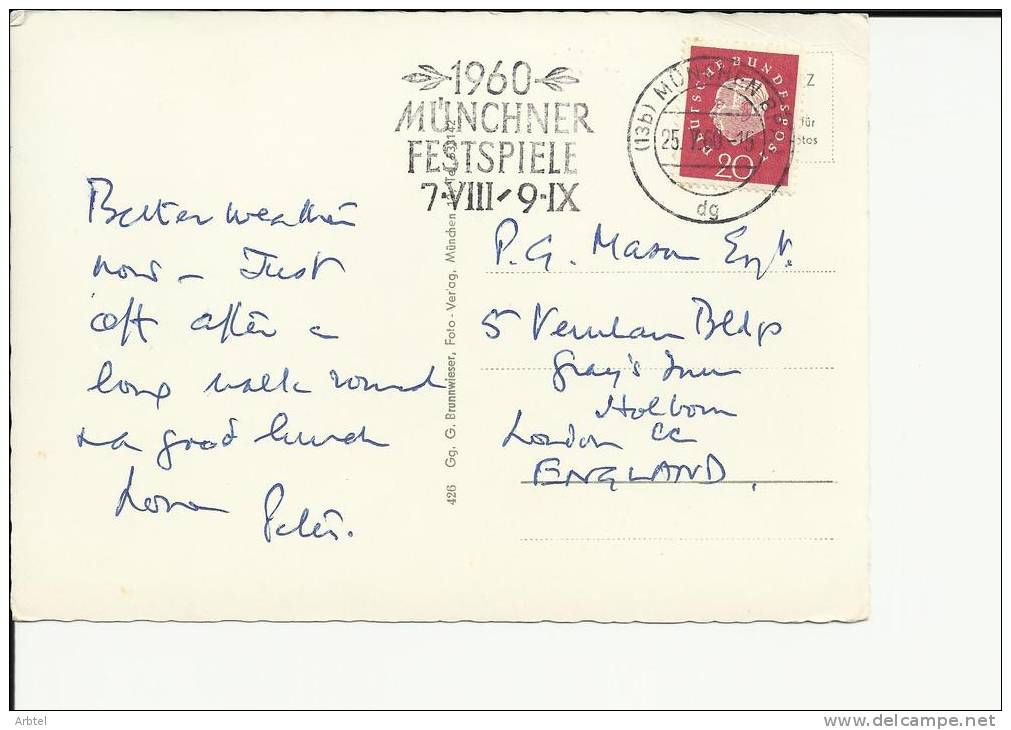 1960
MÜNCHNER
FESTSPIELE
7·VIII-9·IX
(13b) MÜNCHEN
25. 7.60-15
dg
DEUTSCHE BUNDESPOST
20
Z
für
otos
Better weather
now – Just
off after a
long walk round
+ a good lunch
Love
Peter.
426 Gg. G. Brunnwieser, Foto-Verlag, München
P.G. Mason Esq.
5 Verulam Bldgs
Gray's Inn
Holborn
London
ENGLAND.
Arbtel
www.delcampe.net